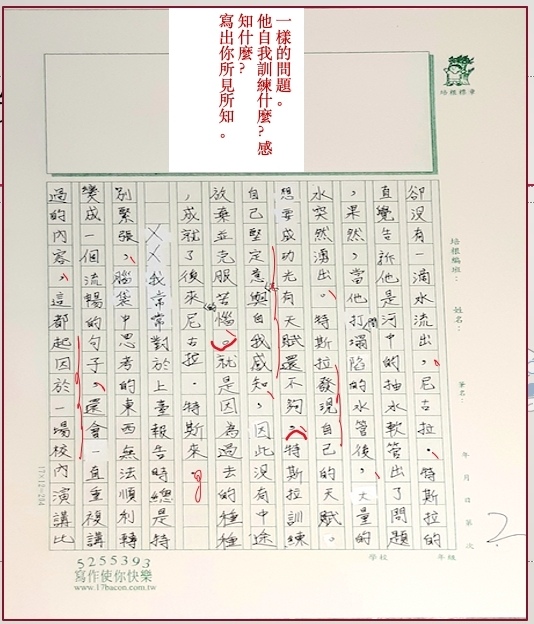 一樣的問題。
他自我訓練什麼?感
知什麼?
寫出你所見所知。
培根標章
培根編班:
姓名:
筆名:
年 月 日 第 次
學校 年級
卻沒有一滴水流出。尼古拉.特斯拉的
直覺告訴他是河中的抽水軟管出了問題
,果然,當他打開塌陷的水管後,大量的
水突然湧出。特斯拉發現自己的天賦。
想要成功光有天賦還不夠。特斯拉訓練
自己堅定意與自我感知,因此沒有中途
放棄並克服苦惱。就是因為過去的種種
,成就了後來尼古拉.特斯來。
XX我常常對於上臺報告時總是特
別緊張,腦袋中思考的東西無法順利轉
變成一個流暢的句子,還會一直重複講
過的內容,這都起因於一場校內演講比
2
17×12=204
5255393
寫作使你快樂
www.17bacon.com.tw